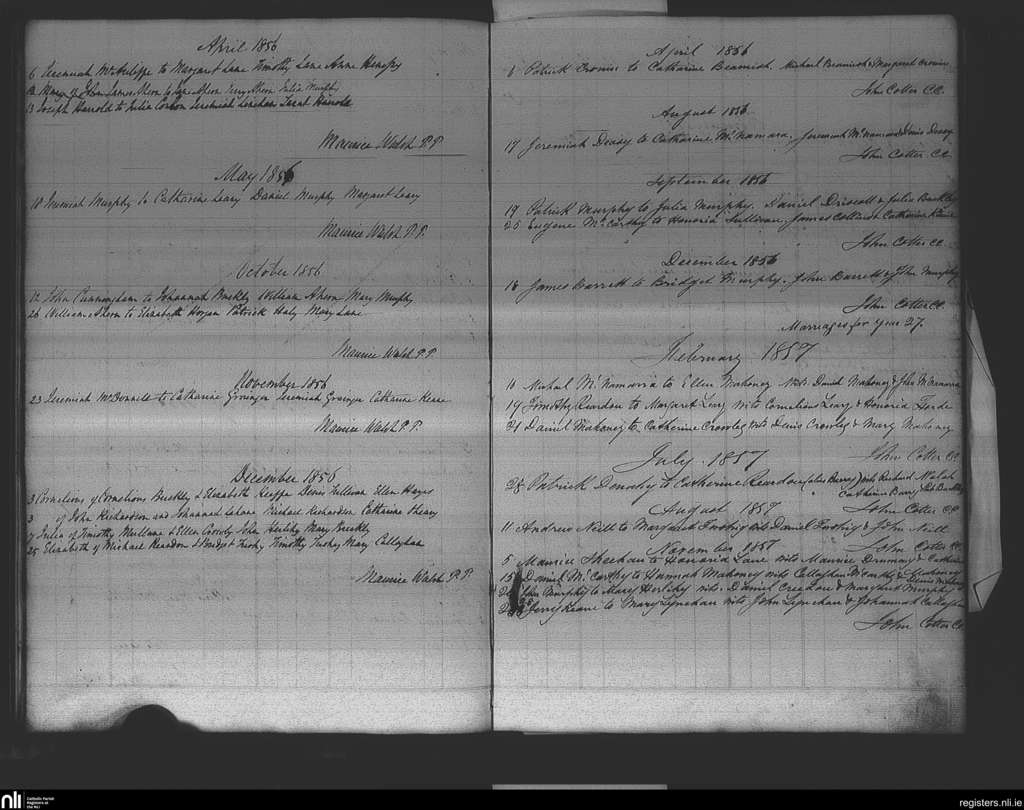 April 1856
6 Jeremiah McAuliffe to Margaret Lane Timothy Lane Anne
12 Mary of John Ahern Mary Ahern Julia Murphy
13 Joseph Harrold to Julia Jeremiah Linehan Harrold
Maurice Walsh P.P.
May 1856
18 Jeremiah Murphy to Catharine Leary Daniel Murphy Margaret Leary
Maurice Walsh P.P.
October 1856
12 John Cunningham to Johannah Buckly William Ahern Mary Murphy
26 William Ahern to Elizabeth Horgan Patrick Healy Mary Lane
Maurice Walsh P.P.
November 1856
23 Jeremiah McDonnell to Catharine Jeremiah Catharine Keane
Maurice Walsh P.P.
December 1856
3 Cornelious of Cornelious Buckly & Elizabeth Keeffe Denis Sullivan Ellen Hayes
3 of John Richardson and Johannah Michael Richardson Catharine Sheay
7 Julia of Timothy Mullane & Ellen Cassidy John Herlihy Mary Buckly
25 Elizabeth of Michael Reardon & Bridget Tuohy Timothy Tuohy Mary Callaghan
Maurice Walsh P.P.
April 1856
6 Patrick Cronin to Catharine Beamish Michael Beamish & Margaret Cronin
John Cotter CC.
August 1856
17 Jeremiah Deady to Catharine McNamara. Jeremiah McNamara & Denis Deady
John Cotter CC
September 1856
19 Patrick Murphy to Julia Murphy. Daniel Driscoll & Julia Buckley
25 Eugene McCarthy to Honoria Sullivan, James Collins & Catharine
John Cotter CC
December 1856
18 James Barrett to Bridget Murphy. John Barrett & John Murphy
John Cotter CC.
Marriages for year 27.
February 1857
10 Michael McNamarra to Ellen Mahoney Nits. David Mahoney & John McNamarra
19 Timothy Reardon to Margaret Leary nits Cornelious Leary & Honoria Forde
21 Daniel Mahoney to Catherine Crowley nits Denis Crowley & Mary Mahoney
John Cotter CC
July 1857
28 Patrick to Catherine Reardon (alias Barry) nits Richard Walsh
Catherine Barry
John Cotter CC
August 1857
11 Andrew Neill to Margaret nits Daniel & John Neill
John Cotter CC.
November 1857
5 Maurice Sheehan to Honoria Lane nits Maurice & Catherine
15 Daniel McCarthy to Hannah Mahoney nits Callaghan McCarthy & Mahoney
John Murphy to Mary nits. Daniel Creedan & Margaret Murphy
Jerry Keane to Mary Lynehan nits John Lynehan & Johannah Callaghan
John Cotter CC
nli
Catholic Parish
Registers at
the NLI
registers.nli.ie